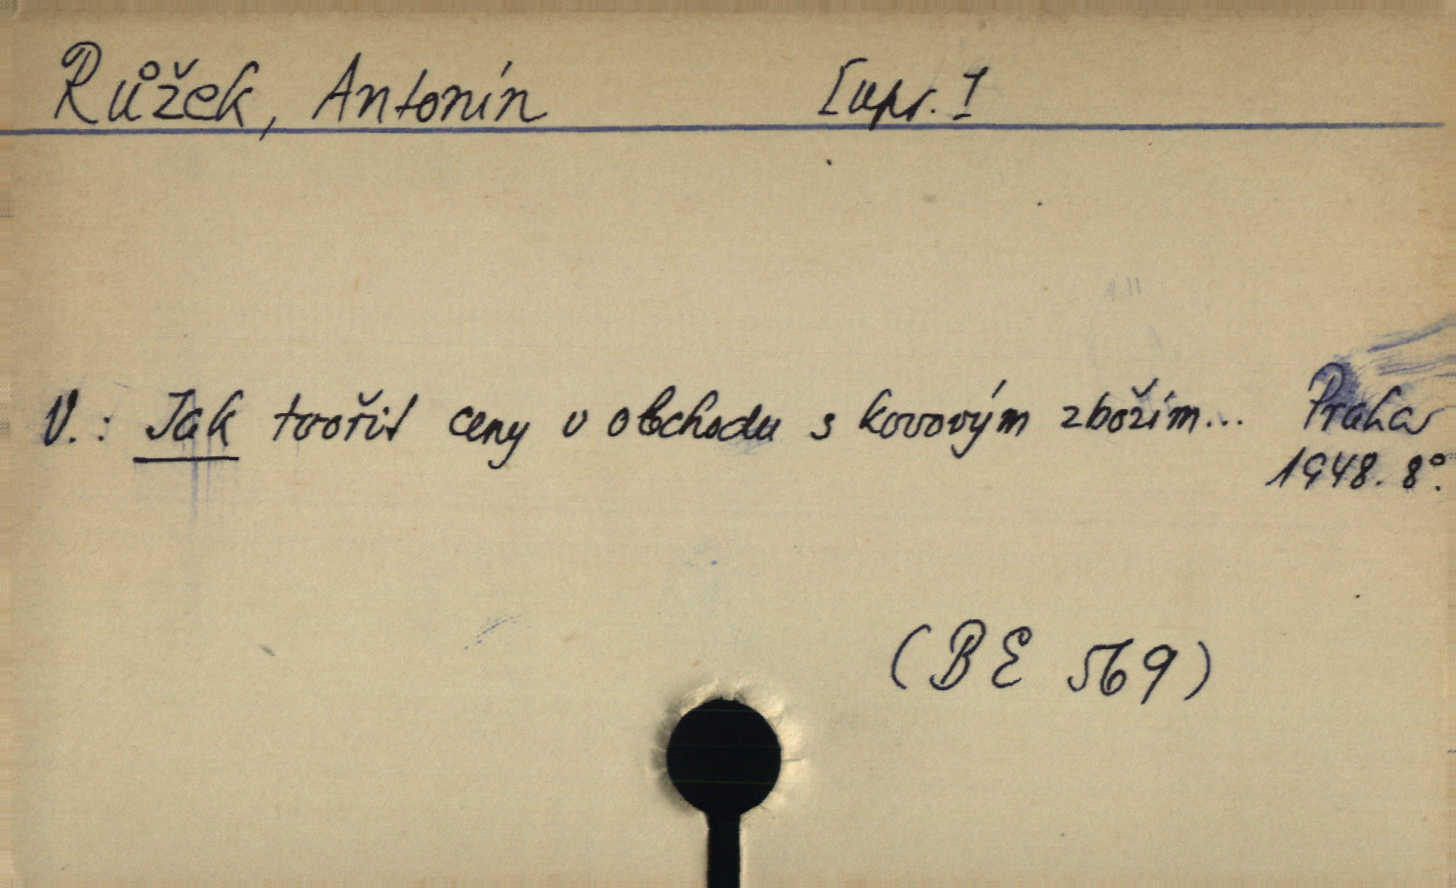 Růžek, Antonín [upr.]
V.: Jak tvořit ceny v obchodu s kovovým zbožím... Praha
1948. 8°.
(BE 569)